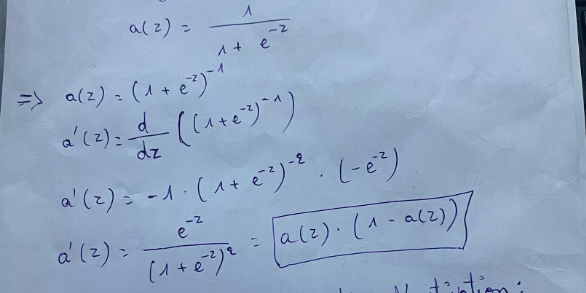 a(z) = 1 / (1 + e^-z)
=> a(z) = (1 + e^-z)^-1
a'(z) = d/dz ((1 + e^-z)^-1)
a'(z) = -1 · (1 + e^-z)^-2 · (-e^-z)
a'(z) = e^-z / (1 + e^-z)^2 = a(z) · (1 - a(z))